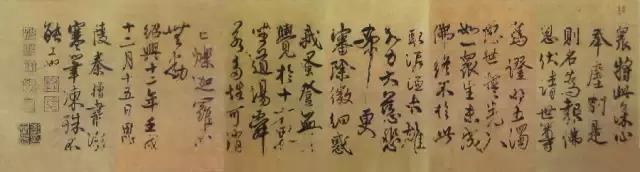 衆將此深心
奉塵刹是
則名為報佛
恩伏請世尊
為證明五濁
惡世誓先入
如一衆生未成
佛終不於此
取泥洹大雄
大力大慈悲
希更
審除微細惑
我早登無上
覺於十方界
坐道場舜
若多性可消
亡爍迦羅心
無動
紹興十二年壬戌
十二月十五日
秦檜書
寒筆凍殊不
能工